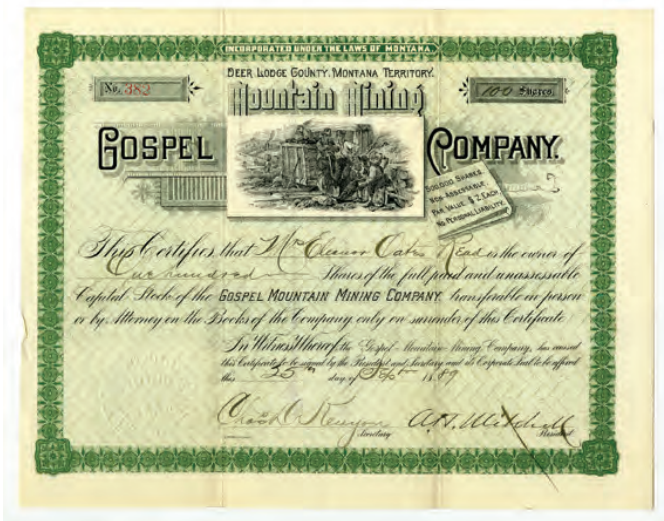 INCORPORATED UNDER THE LAWS OF MONTANA.
DEER LODGE COUNTY, MONTANA TERRITORY.
No. 383
Mountain Mining
100 Shares
GOSPEL COMPANY.
500,000 SHARES
NON-ASSESSABLE.
PAR VALUE $2. EACH.
NO PERSONAL LIABILITY.
This Certifies that Mrs Eleanor Oates Read is the owner of
One hundred Shares of the full paid and unassessable
Capital Stock of the GOSPEL MOUNTAIN MINING COMPANY, transferable in person
or by Attorney on the Books of the Company only on surrender of this Certificate
In Witness Whereof, the Gospel Mountain Mining Company, has caused
this Certificate to be signed by the President and Secretary and its Corporate Seal to be affixed
this 25th day of 1889
Secretary A.H. Mitchell President